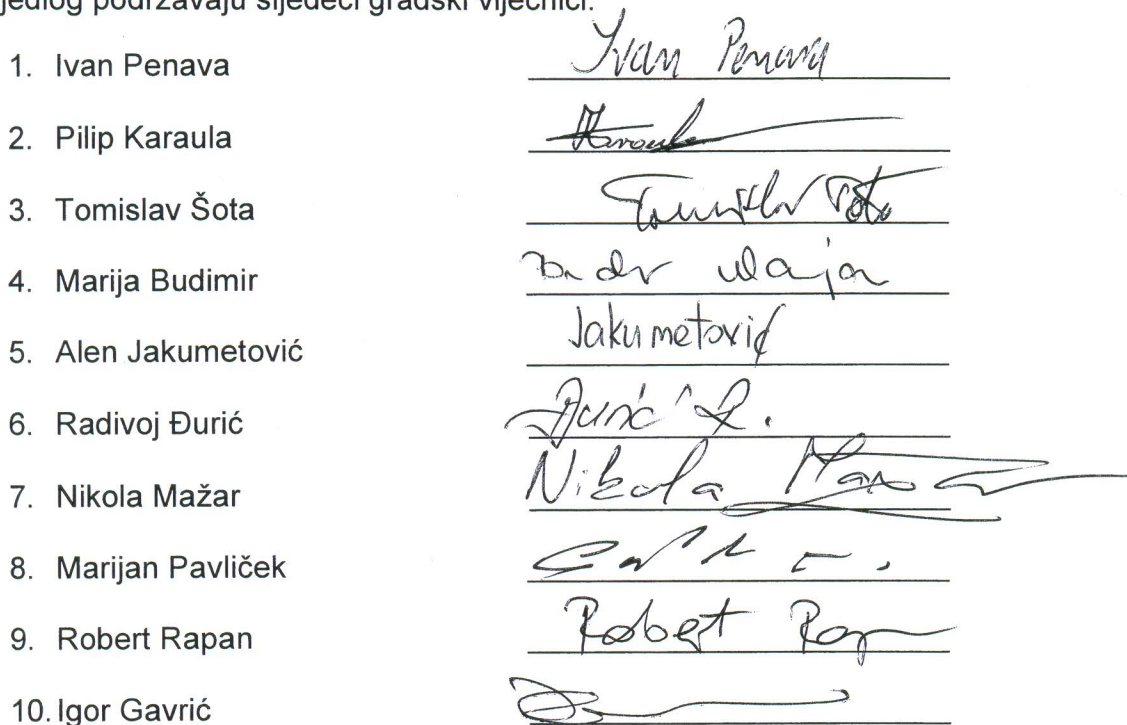 jedlog podržavaju sljedeći gradski vijećnici:
1. Ivan Penava Ivan Penava
2. Pilip Karaula Karaula
3. Tomislav Šota Tomislav Šota
4. Marija Budimir
5. Alen Jakumetović Jakumetović
6. Radivoj Đurić Đurić R.
7. Nikola Mažar Nikola
8. Marijan Pavliček
9. Robert Rapan Robert
10. Igor Gavrić